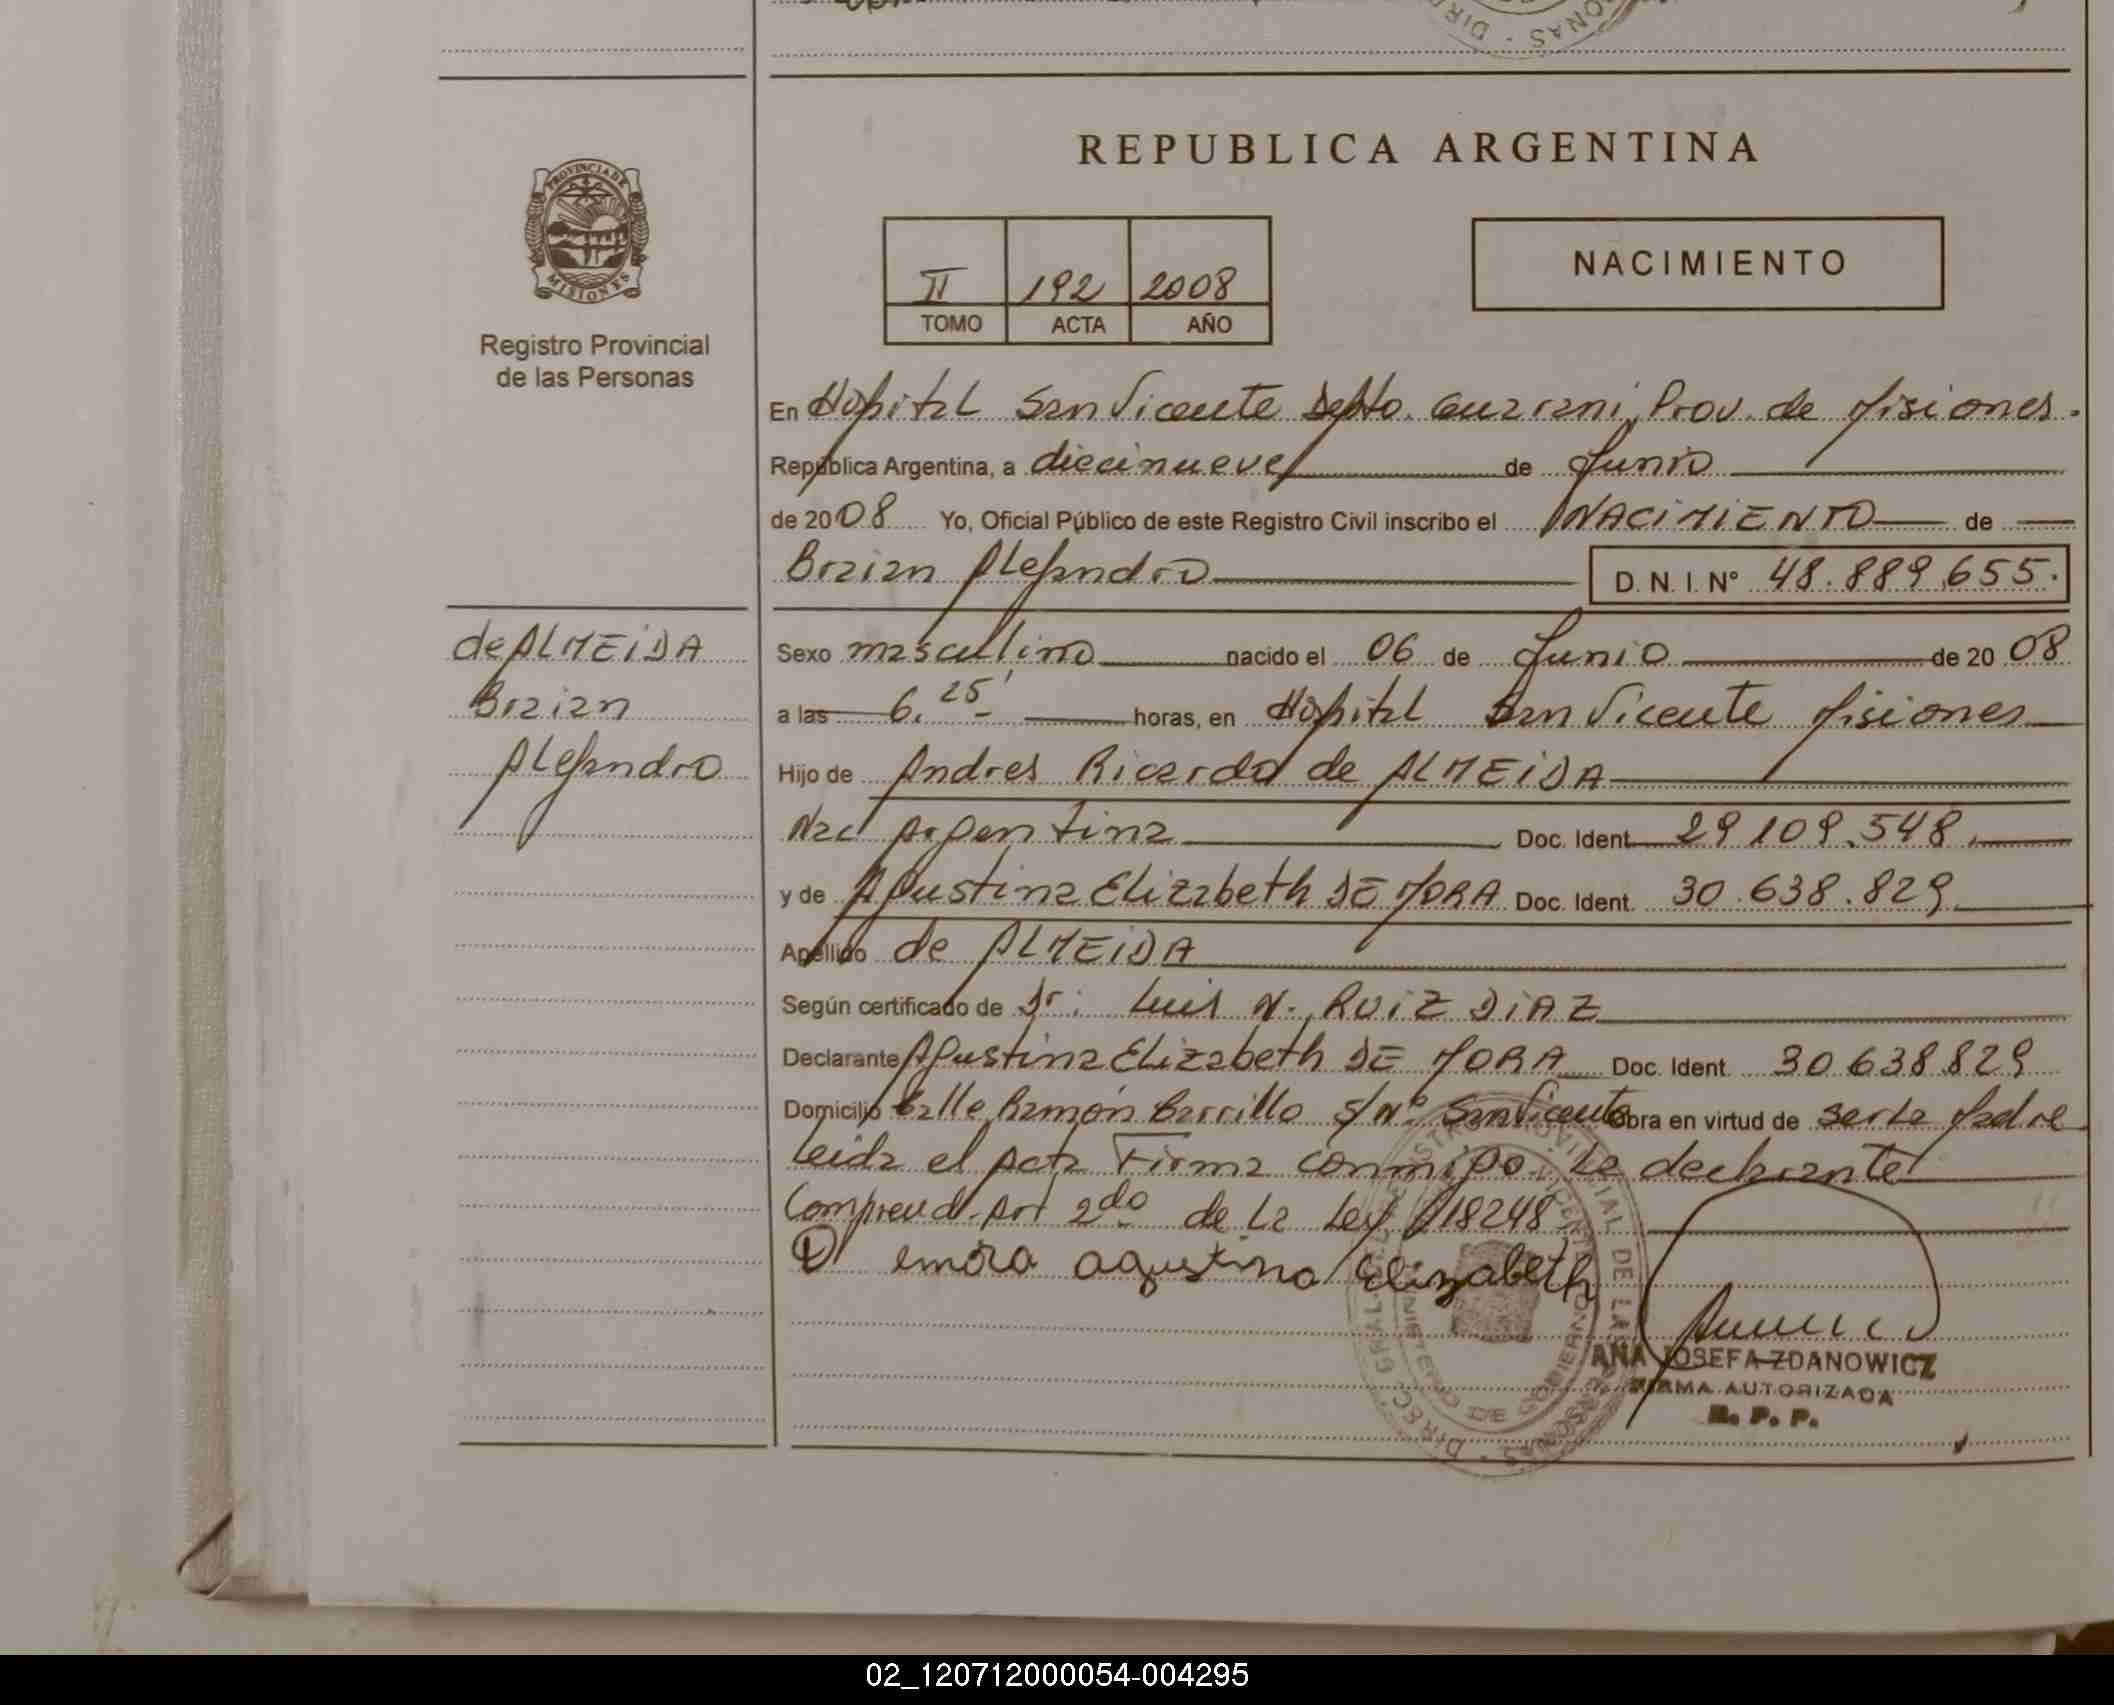 REPUBLICA ARGENTINA
PROVINCIA DE
MISIONES
Registro Provincial
de las Personas
II 192 2008
TOMO ACTA AÑO
NACIMIENTO
En Hospital San Vicente Depto. Guarani, Prov. de Misiones.
República Argentina, a diecinueve de Junio
de 2008 Yo, Oficial Público de este Registro Civil inscribo el NACIMIENTO de
Braian Alejandro D. N. I. Nº 48.889.655.
de ALMEIDA
Braian
Alejandro
Sexo masculino nacido el 06 de Junio de 2008
a las 6.25' horas, en Hospital San Vicente Misiones
Hijo de Andres Ricardo de ALMEIDA
Nac Argentina Doc. Ident. 29109.548
y de Agustina Elizabeth DE MORA Doc. Ident. 30.638.829
Apellido de ALMEIDA
Según certificado de Dr: Luis N. RUIZ DIAZ
Declarante Agustina Elizabeth DE MORA Doc. Ident. 30638829
Domicilio Calle Ramón Carrillo s/Nº San Vicente obra en virtud de ser la Madre
Leida el Acta Firma conmigo La declarante
Comprend. Art 2do de La Ley 18248
agustina Elizabeth
ANA JOSEFA ZDANOWICZ
FIRMA AUTORIZADA
R. P. P.
02_120712000054-004295